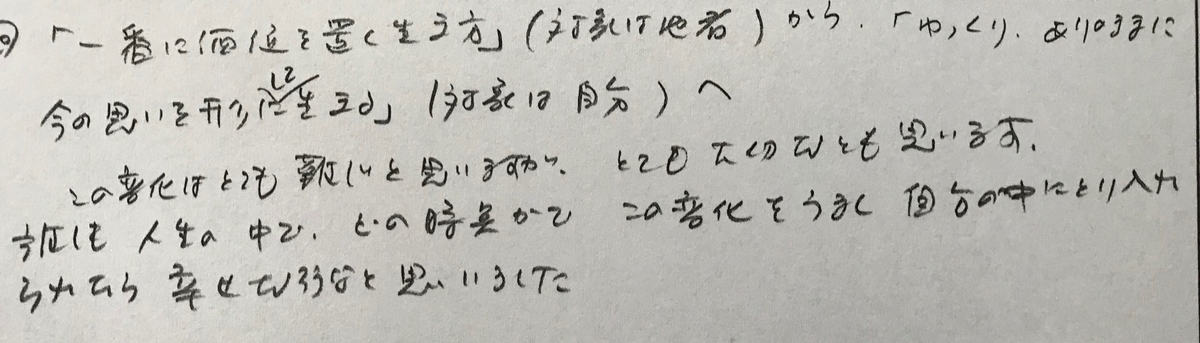 「一番に価値を置く生き方」(対象は他者)から、「ゆっくり、ありのままに
今の思いを形にして生きる」(対象は自分)へ
この変化はとても難しいと思いますが、とても大切なとも思います。
誰しも人生の中で、どの時点かで この変化をうまく自分の中にとり入れ
られたら幸せだろうなと思いました